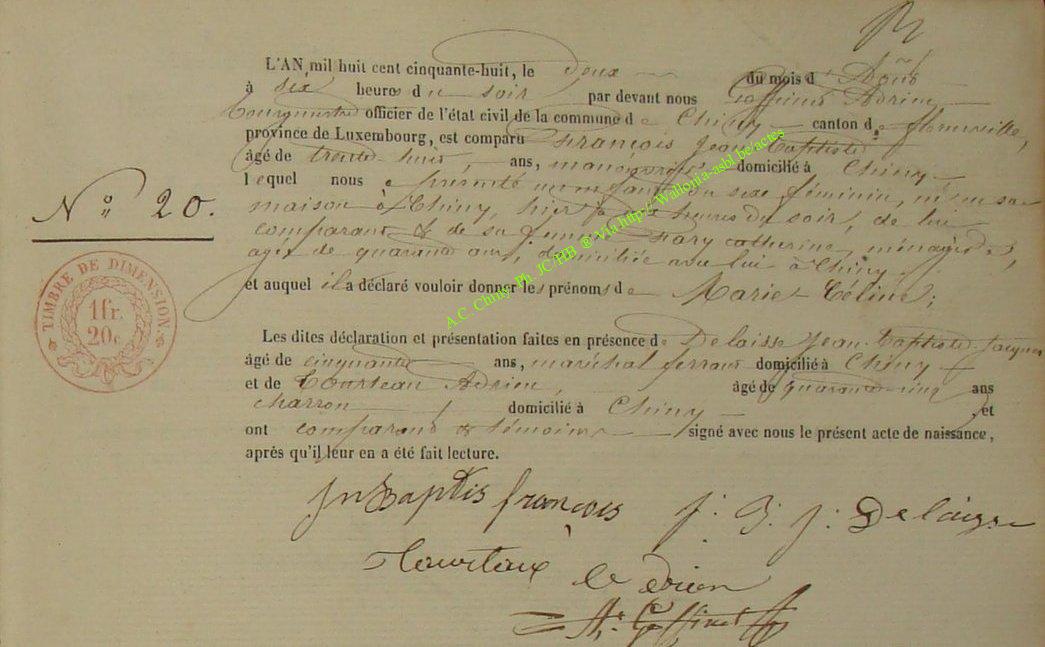 L'AN mil huit cent cinquante-huit, le deux du mois d' Août
à six heures du soir par devant nous Goffinet Adrien,
Bourgmestre officier de l'état civil de la commune de Chiny canton de florenville,
province de Luxembourg, est comparu François Jean Baptiste
âgé de trente huit ans, manœuvre domicilié à Chiny
lequel nous a présenté un enfant du sexe féminin, né en sa
N° 20.
maison à Chiny, hier à heures du soir, de lui
comparant & de sa femme Mary catherine, ménagère,
agée de quarante ans, domiciliée avec lui à Chiny
et auquel il a déclaré vouloir donner les prénoms de Marie Céline;
TIMBRE DE DIMENSION.
1fr.
20c
A.C. Chiny-Ph. JC/HB ® Via http:// Wallonia-asbl.be/actes
Les dites déclaration et présentation faites en présence de Delaisse Jean-Baptiste Jacques
âgé de cinquante ans, maréchal ferrant domicilié à Chiny
et de Tourteau Adrien, âgé de quarante-cinq ans
charron domicilié à Chiny et
ont comparant & témoins signé avec nous le présent acte de naissance,
après qu'il leur en a été fait lecture.
Jn Baptis françois J: B: J: Delaisse
A. Goffinet